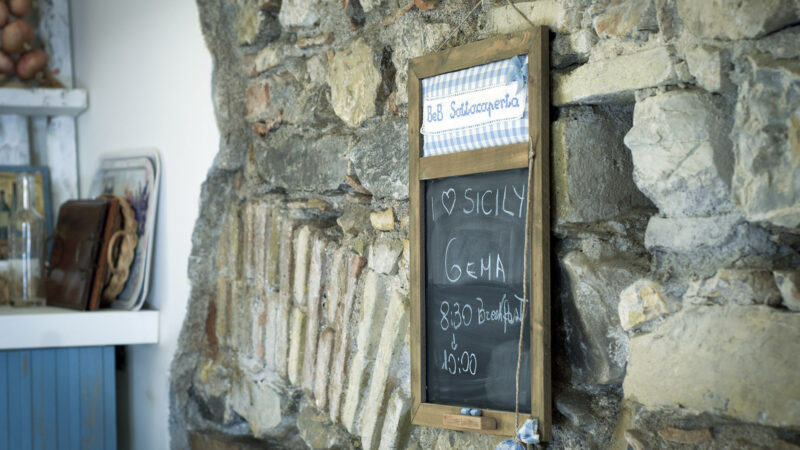 BeB Sottocoperta
I ♡ SICILY
GEMA
8:30 Breakfast
a
10:00